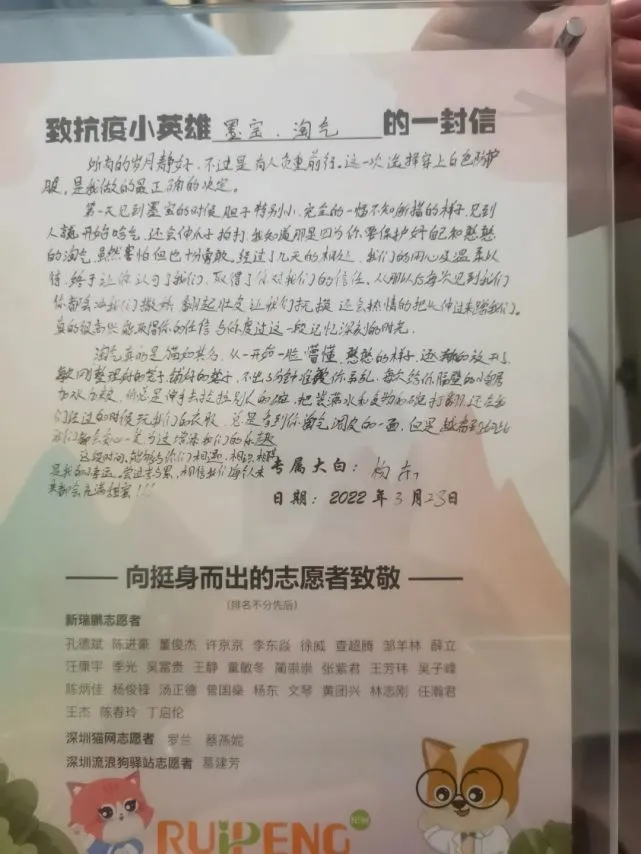 致抗疫小英雄 墨宝、淘气 的一封信
所有的岁月静好,不过是有人负重前行。这一次选择穿上白色防护
服,是我做的最正确的决定。
第一次见到墨宝的时候,胆子特别小,完全的一幅不知所措的样子,见到
人就开始哈气,还会伸爪子拍打,我知道那是因为你要保护好自己和憨憨
的淘气,虽然害怕但也十分勇敢,经过了几天的相处,我们的用心及温柔以
待,终于让你认可了我们,取得了你对我们的信任。从那以后每次见到我们
你都会冲我们撒娇,翻起肚皮让我们抚摸,还会热情的把爪伸过来踏我们。
真的很高兴能取得你的信任与你度过这一段记忆深刻的时光。
淘气真的是猫如其名,从一开始一脸懵懂,憨憨的样子,逐渐的放开了
刚整理好的笼子,铺好的垫子,不出5分钟准被你弄乱,每次给你隔壁的小哥哥
加水加粮,你总是伸手去拉别人的碗,把装满水和食物的碗打翻,还会在我
们经过的时候玩我们的衣服,总是看到你淘气调皮的一面,但是
我们都会会心一笑
这段时间,能够与你们相遇,相识,相伴
是我的幸运。相信我们每个人未
来都会充满甜蜜!!!
专属大白:杨东
日期:2022年3月23日
向挺身而出的志愿者致敬
(排名不分先后)
新瑞鹏志愿者
孔德斌 陈进豪 董俊杰 许京京 李东焱 徐威 壹超腾 邹羊林 薛立
汪康宇 季光 吴富贵 王静 童敏冬 蔺崇崇 张紫君 王芳玮 吴子峰
陈炳佳 杨俊锋 汤正德 曾国燊 杨东 文琴 黄团兴 林志刚 任瀚君
王杰 陈春玲 丁启伦
深圳猫网志愿者 罗兰 蔡燕妮
深圳流浪狗驿站志愿者 葛建芳
RUIPENG
NEW